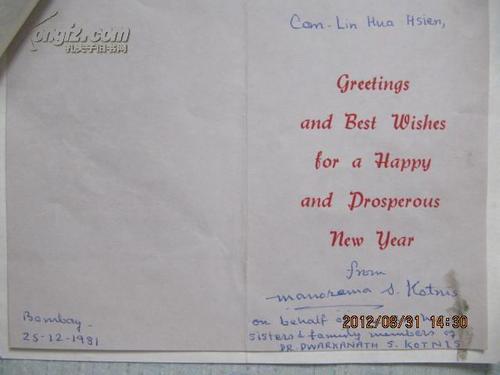 Kongfz.com
孔夫子旧书网
Com. Lin Hua Hsien,
Greetings
and Best Wishes
for a Happy
and Prosperous
New Year
from
manorama S. Kotnis
on behalf
2012/08/31 14:30
sisters & family members of
DR. DWARKANATH S. KOTNIS
Bombay.
25-12-1981